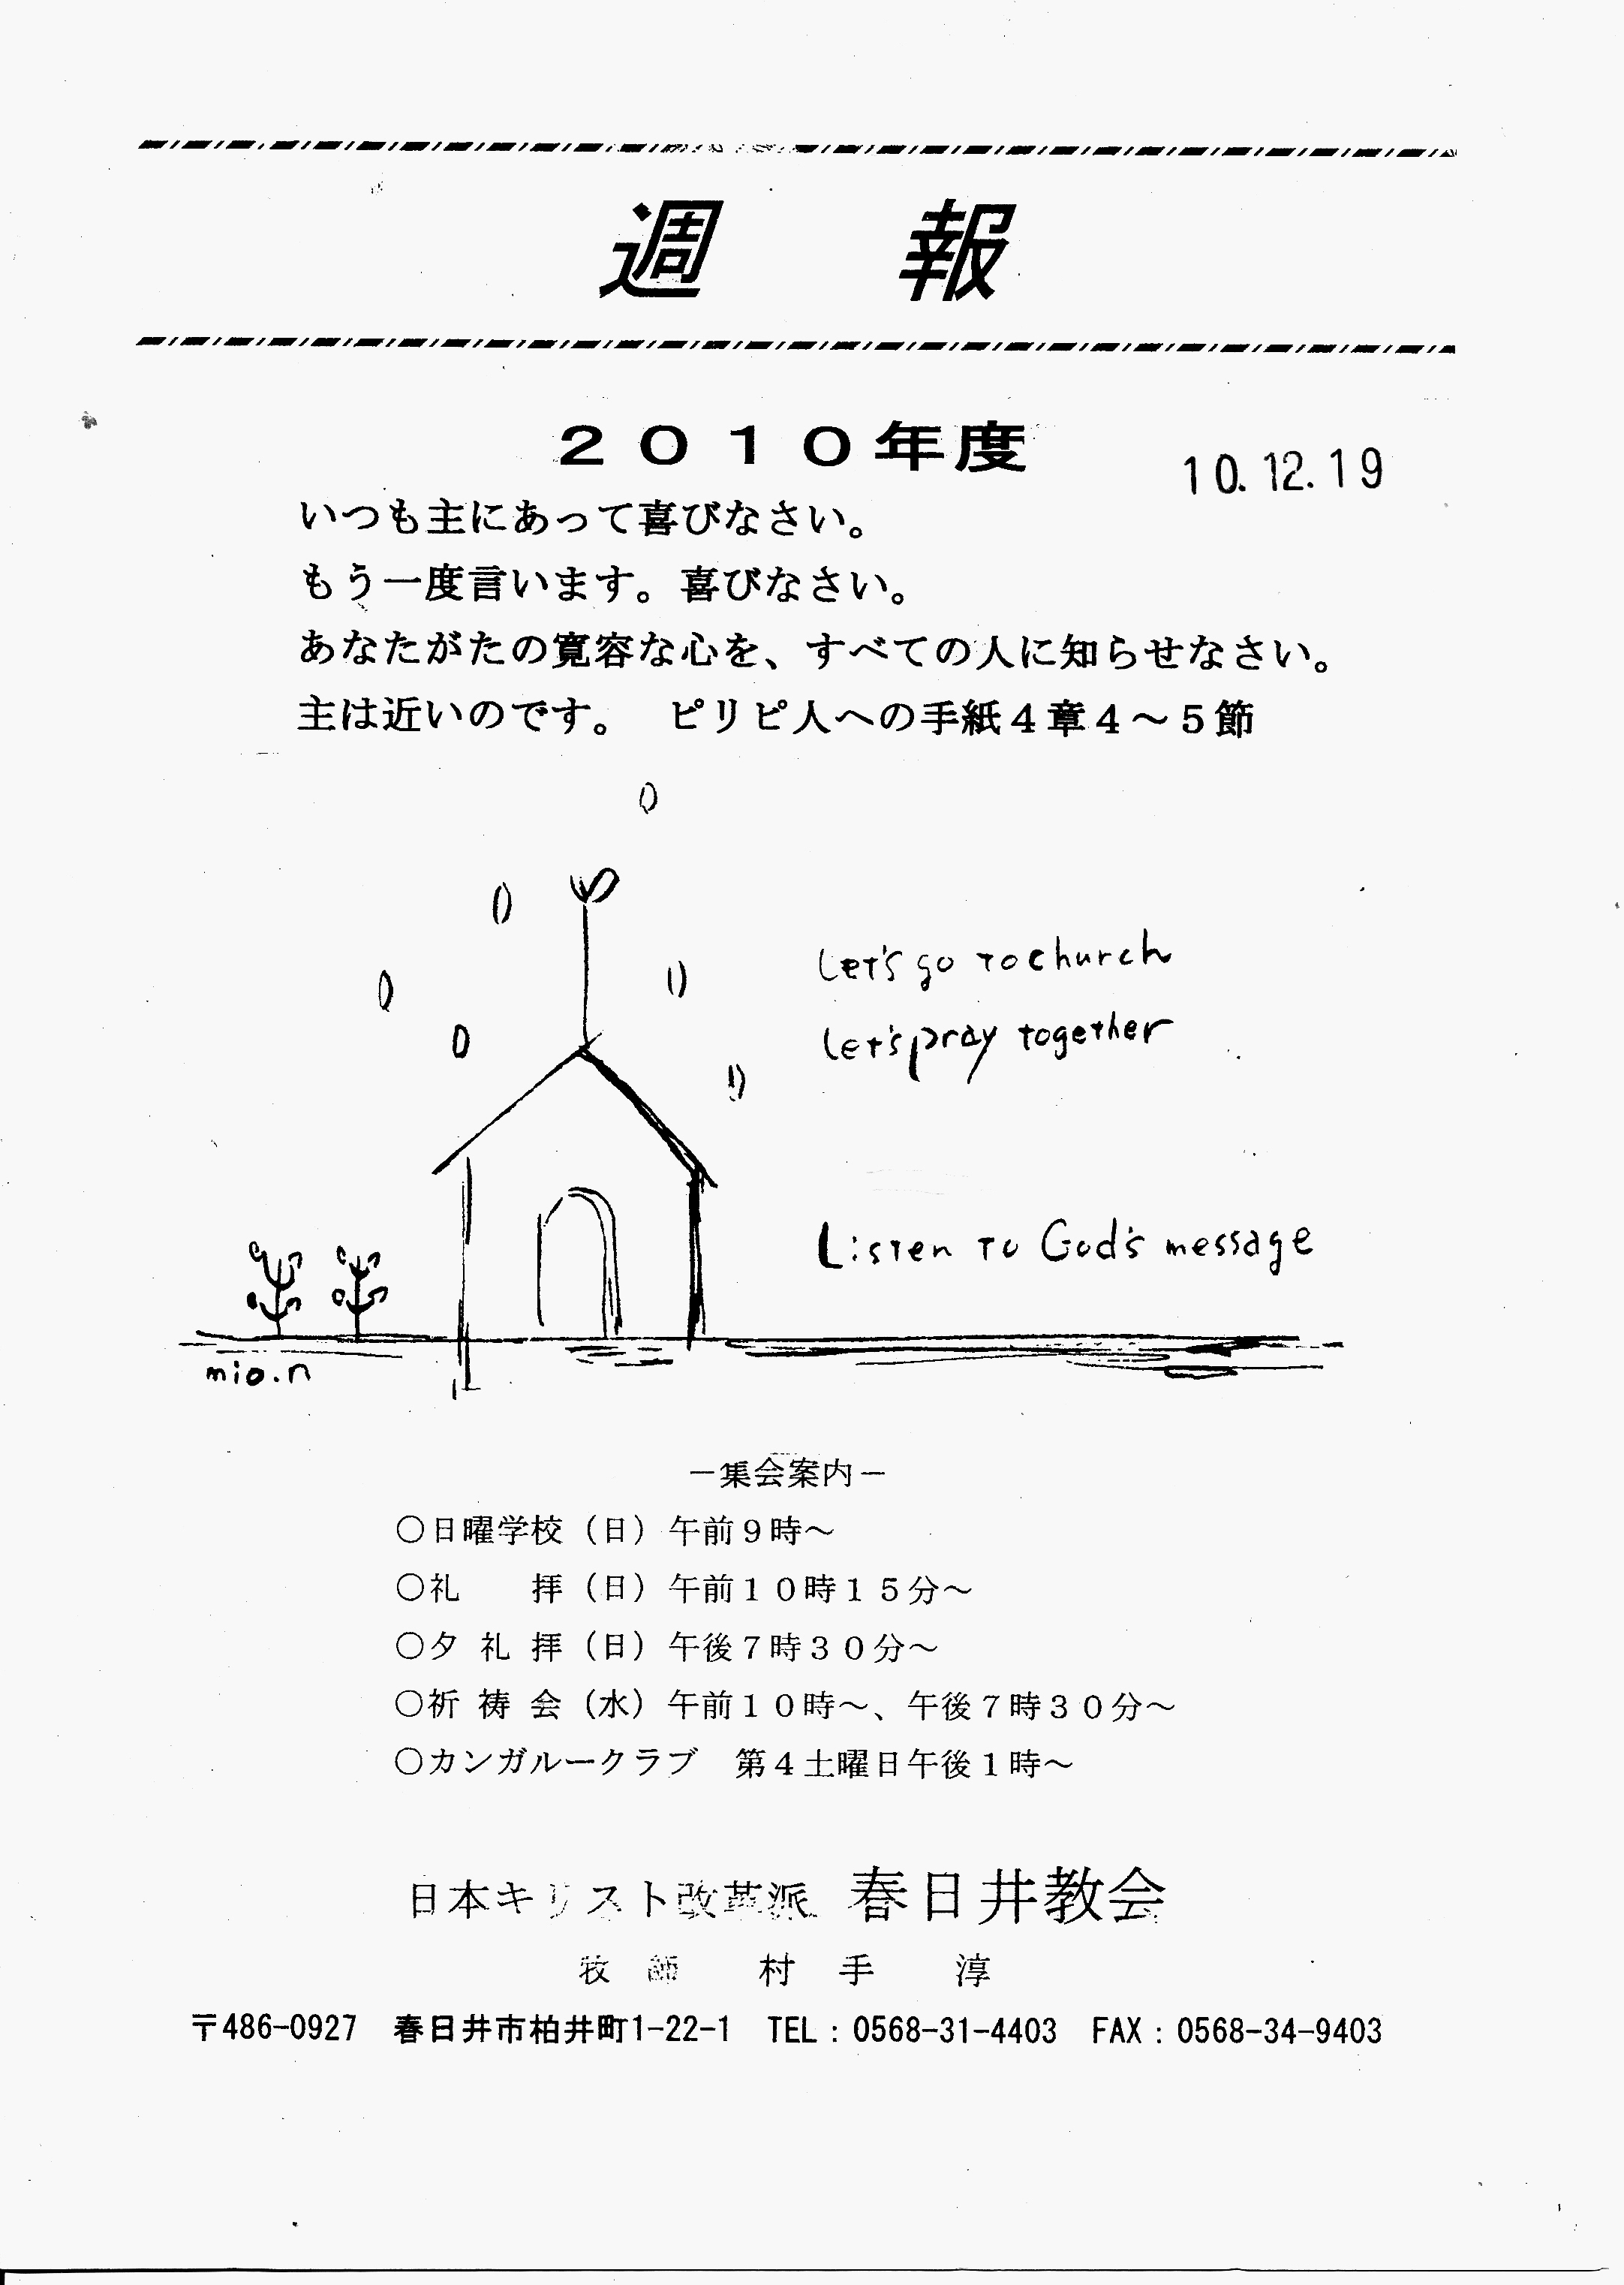 週　報
２０１０年度
10.12.19
いつも主にあって喜びなさい。
もう一度言います。喜びなさい。
あなたがたの寛容な心を、すべての人に知らせなさい。
主は近いのです。　ピリピ人への手紙４章４～５節
Let's go to church
Let's pray together
Listen to God's message
mio.n
－集会案内－
○日曜学校（日）午前９時～
○礼　　拝（日）午前１０時１５分～
○夕 礼 拝（日）午後７時３０分～
○祈 祷 会（水）午前１０時～、午後７時３０分～
○カンガルークラブ　第４土曜日午後１時～
日本キリスト改革派 春日井教会
牧　師　　村　手　　淳
〒486-0927　春日井市柏井町1-22-1　TEL：0568-31-4403　FAX：0568-34-9403